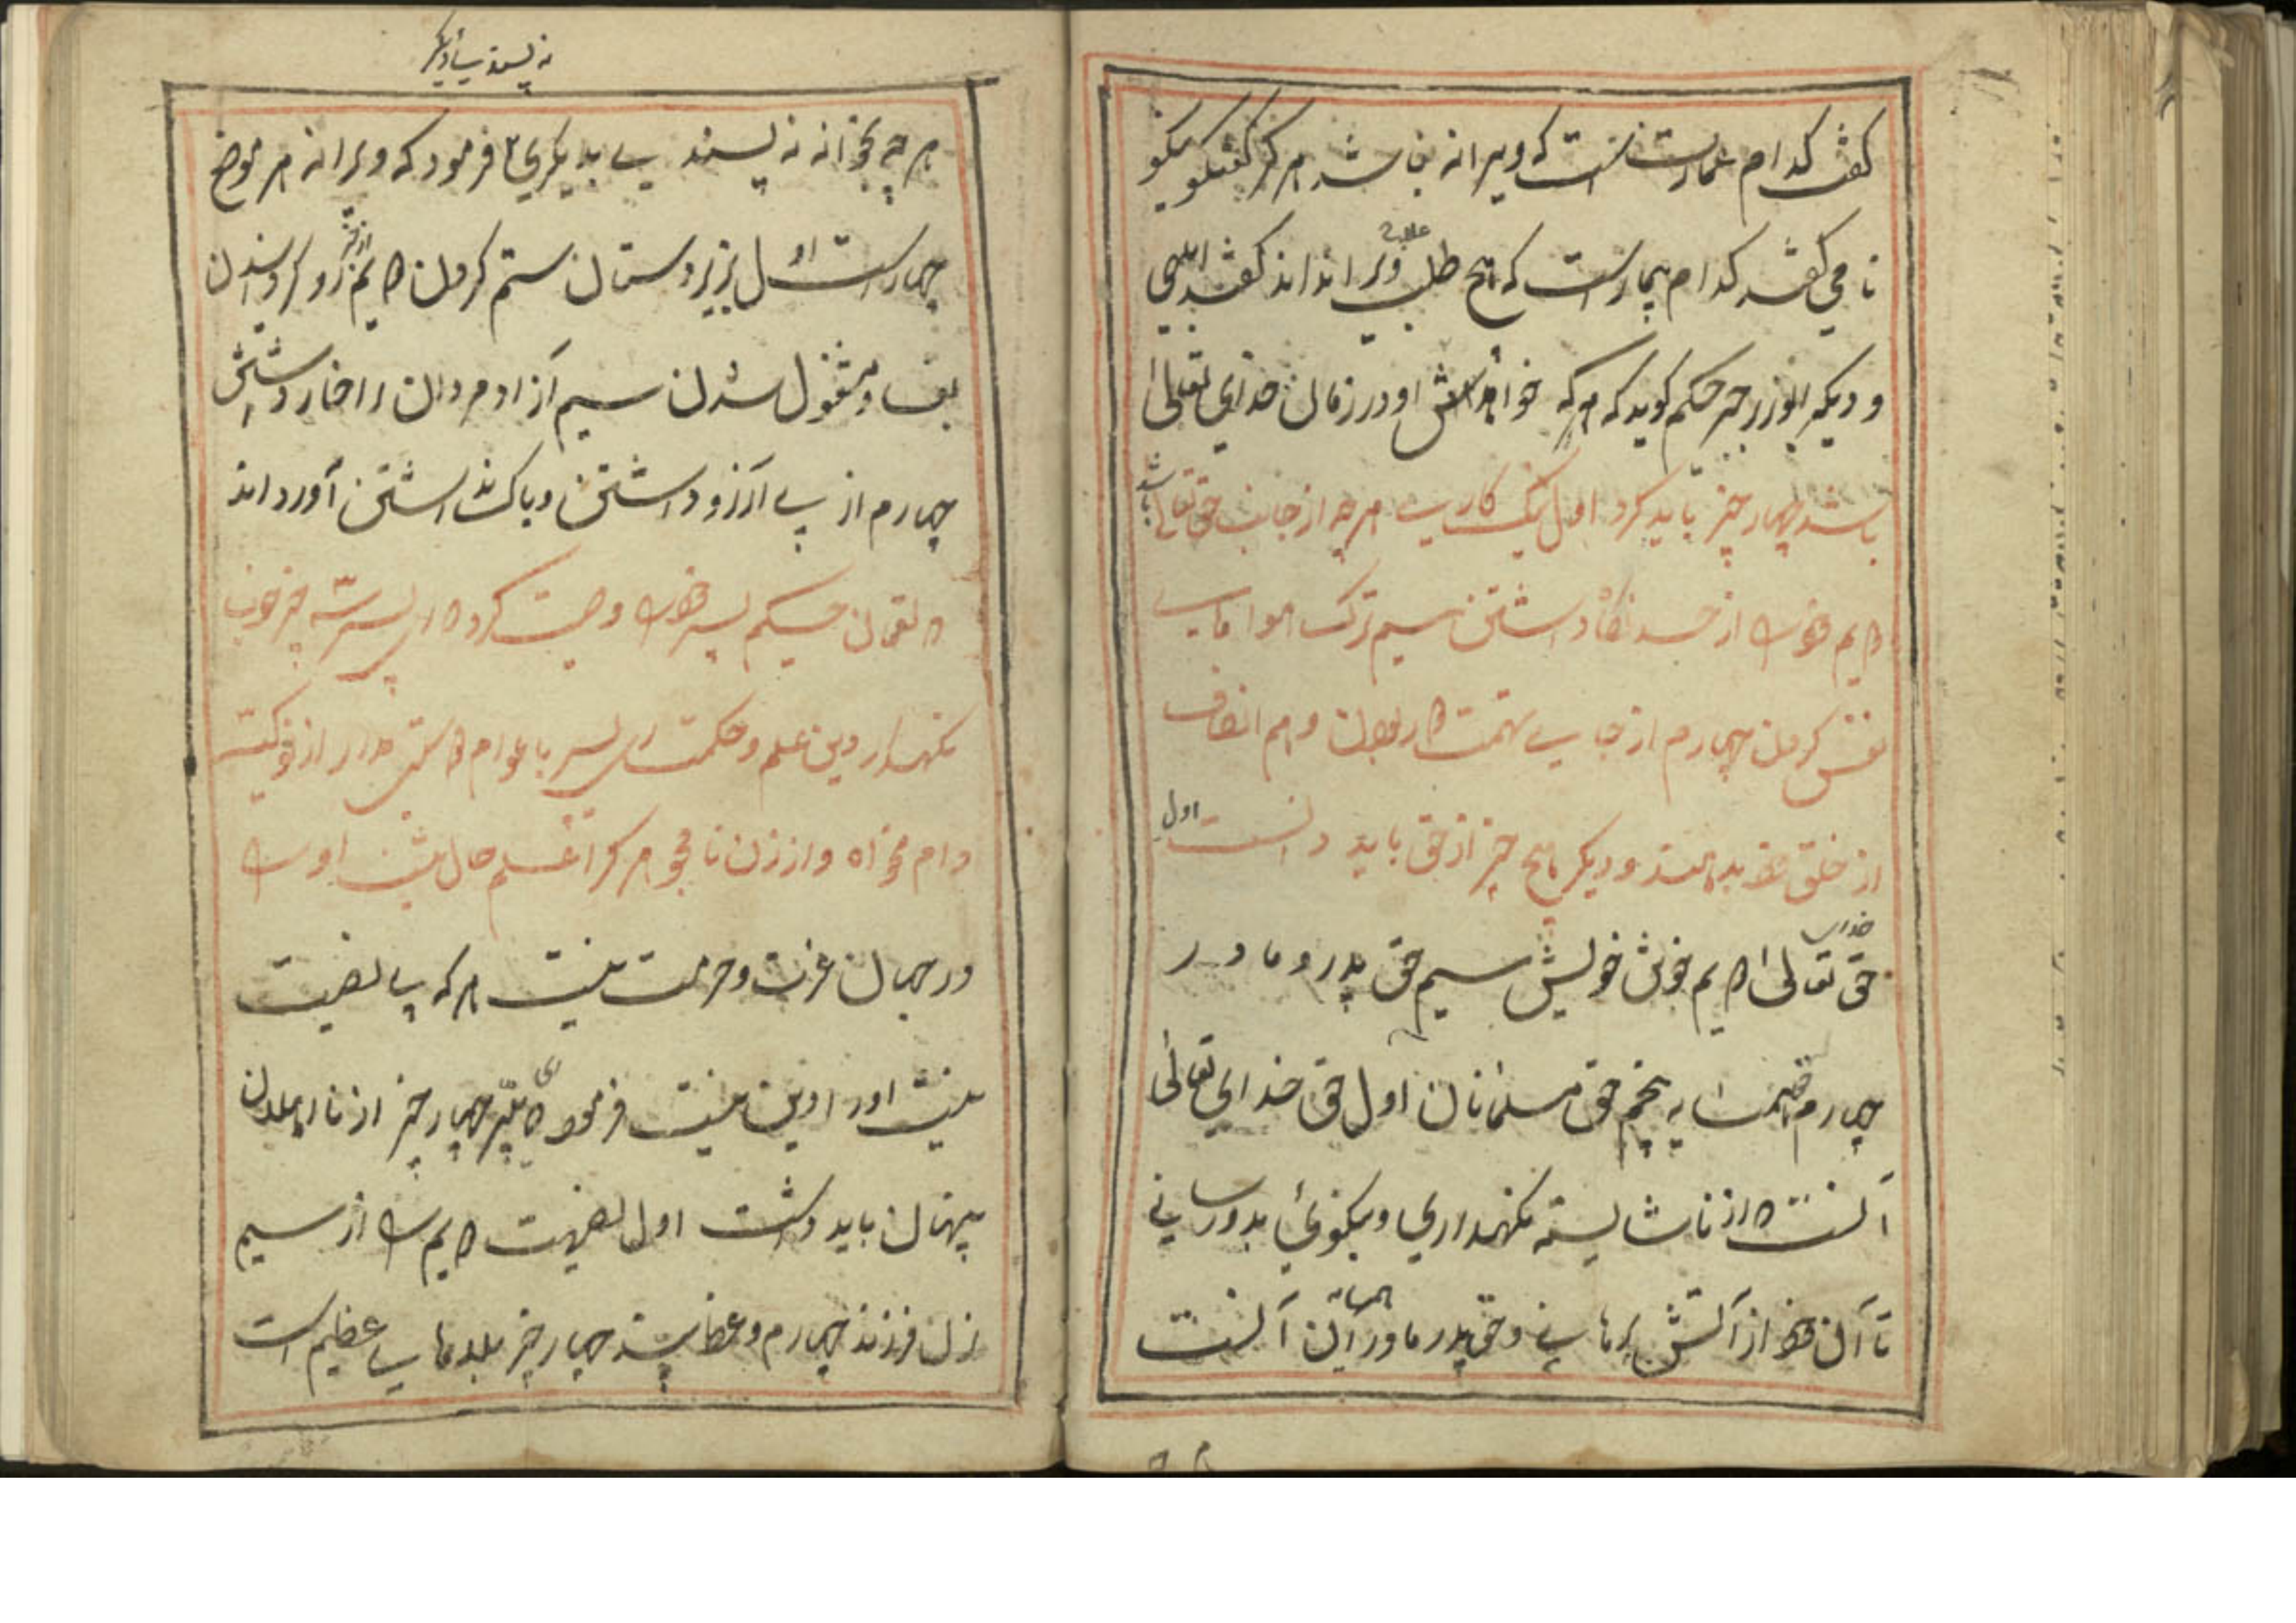 گفتند کدام عمارتست که ویرانه نباشد هرگز گفت نیکو
نامی گفتند کدام بیماریست که هیچ طبیب علاج ویرا نداند گفتند ابلهی
و دیگر ابوزرجمهر حکیم گوید که هرکه خواهد اش او در زمان خدای تعالی
باشد چهار چیز باید کرد اول نیک کاری هرچه از جانب حق تعالی باشد
دویم خود را از حسد نگاه داشتن سیم ترک هوا
نفس کردن چهارم از جای تهمت دور بودن و هم انصاف
از خلق خدا و دیگر پنج چیز از حق باید دانست اول
حق خدای تعالی دویم خویش سیم حق پدر و مادر
چهارم حق همسایه پنجم حق مسلمانان اول حق خدای تعالی
آنست که از ناشایسته نگهداری و نیکوئی بدو رسانی
تا آن خود از آتش برهانی و حق پدر مادر آن آنست
نه پسندی با دیگر
هر چه بخود نه پسندی بدیگری فرمود که ویرانه هر موضع
چهارست اول بر زیردستان ستم کردن دویم از خیر رو گردانیدن
و مشغول شدن سیم آزاد مردان را خوار داشتن
چهارم از پی آرزو داشتن و باک نداشتن آورداند
که لقمان حکیم پسر خود را وصیت کرد که ای پسر سه چیز خوب
نگهدار دین علم و حکمت ای پسر با عوام دوستی مدار از نوکیسه
وام مخواه و از زن نا مجو هر کرا علم حال نیست او را
در جهان عزت و حرمت نیست هر که پی نصیحت
نیست اورا دین نیست فرمود که ای پسر چهار چیز از نا اهلان
پنهان باید داشت اول نصیحت دویم را از سیم
زن فرزند چهارم و عظ پند چهار چیز بلای عظیم است